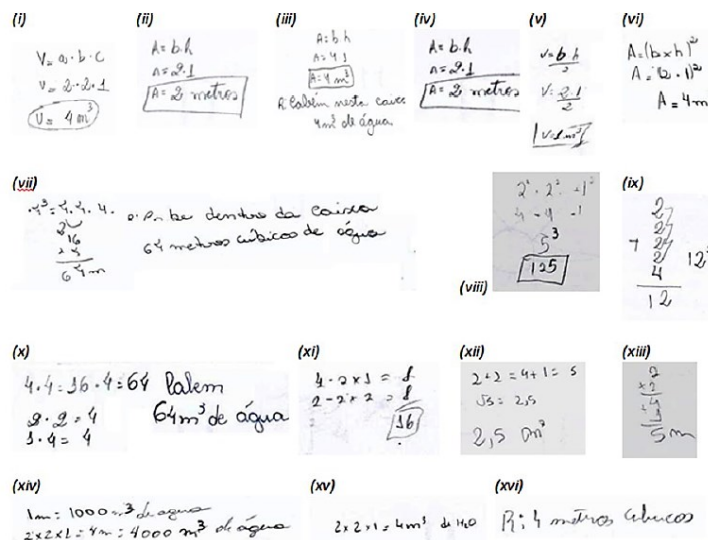 (i)
V = a · b · c
V = 2 · 2 · 1
V = 4 m³
(ii)
A = b.h
A = 2.1
A = 2 metros
(iii)
A = b.h
A = 4 1
A = 4 m³
R Cabem nesta caixa
4m³ de água
(iv)
A = b.h
A = 2.1
A = 2 metros
(v)
V = b.h
2
V = 2.1
2
V = 1 m³
(vi)
A = (b x h)²
A = (2 · 1)²
A = 4m
(vii)
4³ = 4. 4. 4.
16
64 m
be dentro da caixa
64 metros cúbicos de água
(viii)
2² · 2² · 1²
4 - 4 · 1
5³
125
(ix)
2
2
+ 2
2
4
12
(x)
4 · 4 = 16 · 4 = 64
2 · 2 = 4
1 · 4 = 4
64 m³ de água
(xi)
4 · 2 x 1 = 8
2 - 2 x 2 = 8
16
(xii)
2 + 2 = 4 + 1 = 5
√5 = 2,5
2,5 m³
(xiii)
2
5 m
(xiv)
1m = 1000 m³ de agua
2 x 2 x 1 = 4m = 4000 m³ de água
(xv)
2 x 2 x 1 = 4m³ de H₂O
(xvi)
R: 4 metros cubicos